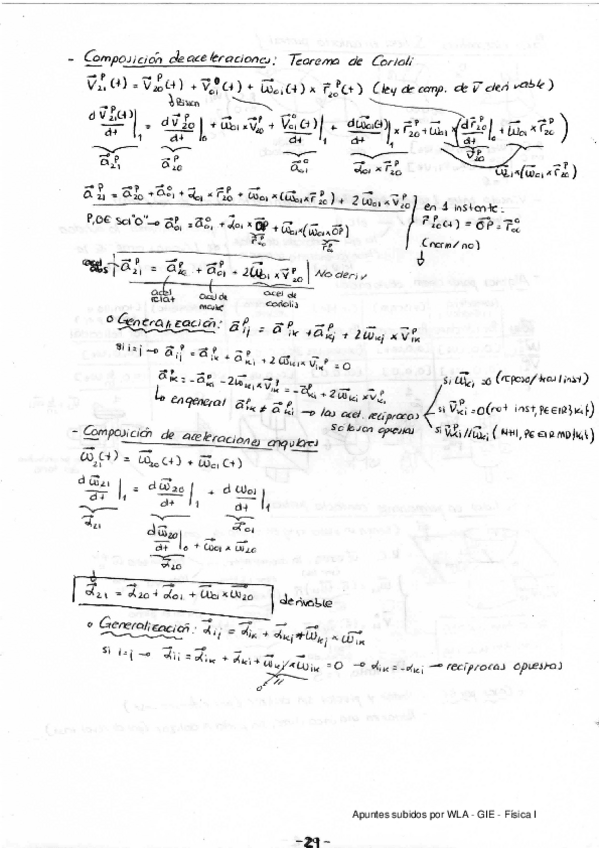 - Composición de aceleraciones: Teorema de Corioli
V⃗₂₁ᴾ(t) = V⃗₂₀ᴾ(t) + V⃗₀₁⁰(t) + ω⃗₀₁(t) × r⃗₂₀ᴾ(t) (ley de comp. de v⃗ derivable)
dV⃗₂₁ᴾ(t)/dt |₁ = dV⃗₂₀ᴾ/dt |₀ + ω⃗₀₁ × V⃗₂₀ᴾ + dV⃗₀₁⁰(t)/dt |₁ + dω⃗₀₁(t)/dt |₁ × r⃗₂₀ᴾ + ω⃗₀₁ × (dr⃗₂₀ᴾ/dt |₀ + ω⃗₀₁ × r⃗₂₀ᴾ)
a⃗₂₁ᴾ a⃗₂₀ᴾ a⃗₀₁⁰ α⃗₀₁ × r⃗₂₀ᴾ V⃗₂₀ᴾ
a⃗₂₁ᴾ = a⃗₂₀ᴾ + a⃗₀₁⁰ + α⃗₀₁ × r⃗₂₀ᴾ + ω⃗₀₁ × (ω⃗₀₁ × r⃗₂₀ᴾ) + 2ω⃗₀₁ × V⃗₂₀ᴾ
en 1 instante:
P,O∈ sol "0" → a⃗₀₁ᴾ = a⃗₀₁⁰ + α⃗₀₁ × OP + ω⃗₀₁ × (ω⃗₀₁ × OP)
(norm/no)
acel abs a⃗₂₁ᴾ = a⃗₂₀ᴾ + a⃗₀₁ᴾ + 2ω⃗₀₁ × V⃗₂₀ᴾ No deriv
acel relat acel de acel de coriolis
o Generalización: a⃗ᵢⱼᴾ = a⃗ᵢₖᴾ + a⃗ₖⱼᴾ + 2ω⃗ₖⱼ × V⃗ᵢₖᴾ
si i=j → a⃗ᵢⱼᴾ = a⃗ᵢₖᴾ + a⃗ₖᵢᴾ + 2ω⃗ₖᵢ × V⃗ᵢₖᴾ = 0
a⃗ᵢₖᴾ = -a⃗ₖᵢᴾ - 2ω⃗ₖᵢ × V⃗ᵢₖᴾ = -a⃗ₖᵢᴾ + 2ω⃗ₖᵢ × V⃗ₖᵢᴾ
en general a⃗ᵢₖᴾ ≠ a⃗ₖᵢᴾ → las acel. recíprocas solo son opuestas
si ω⃗ₖᵢ = 0 (reposo/tras inst)
si V⃗ₖᵢᴾ = 0 (rot inst,
si V⃗ₖᵢᴾ // ω⃗ₖᵢ
- Composición de aceleraciones angulares
ω⃗₂₁(t) = ω⃗₂₀(t) + ω⃗₀₁(t)
dω⃗₂₁/dt |₁ = dω⃗₂₀/dt |₁ + dω₀₁/dt |₁
α⃗₂₁ α⃗₀₁
dω⃗₂₀/dt |₀ + ω⃗₀₁ × ω⃗₂₀
α⃗₂₀
α⃗₂₁ = α⃗₂₀ + α⃗₀₁ + ω⃗₀₁ × ω⃗₂₀ derivable
o Generalización: α⃗ᵢⱼ = α⃗ᵢₖ + α⃗ₖⱼ + ω⃗ₖⱼ × ω⃗ᵢₖ
si i=j → α⃗ᵢᵢ = α⃗ᵢₖ + α⃗ₖᵢ + ω⃗ₖⱼ × ω⃗ᵢₖ = 0 → αᵢₖ = -αₖᵢ → recíprocas opuestas
Apuntes subidos por WLA - GIE - Física I